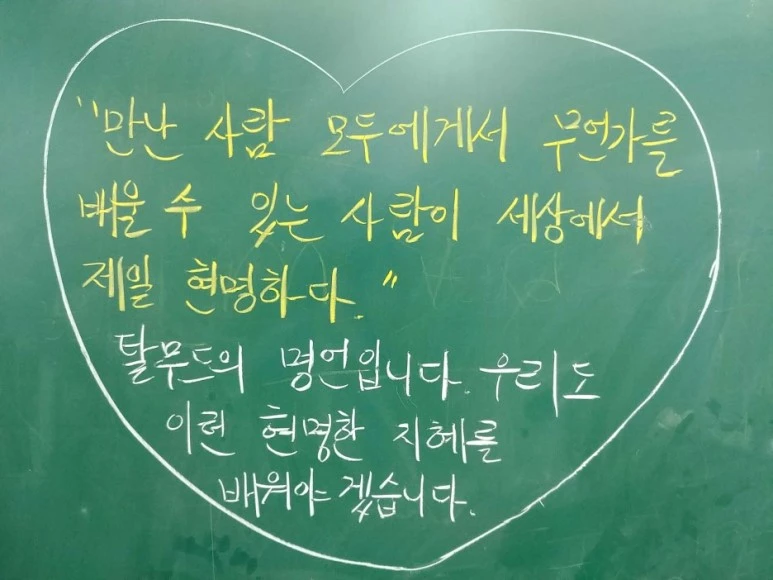 "만난 사람 모두에게서 무언가를
배울 수 있는 사람이 세상에서
제일 현명하다."
탈무드의 명언입니다. 우리도
이런 현명한 지혜를
배워야겠습니다.